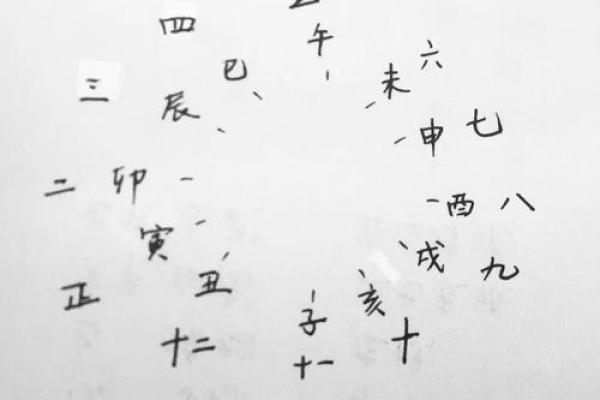 四
午
巳
六
未
三
辰
七
申
二
卯
酉
八
寅
戌
九
正
丑
亥
子
十二
十一
十